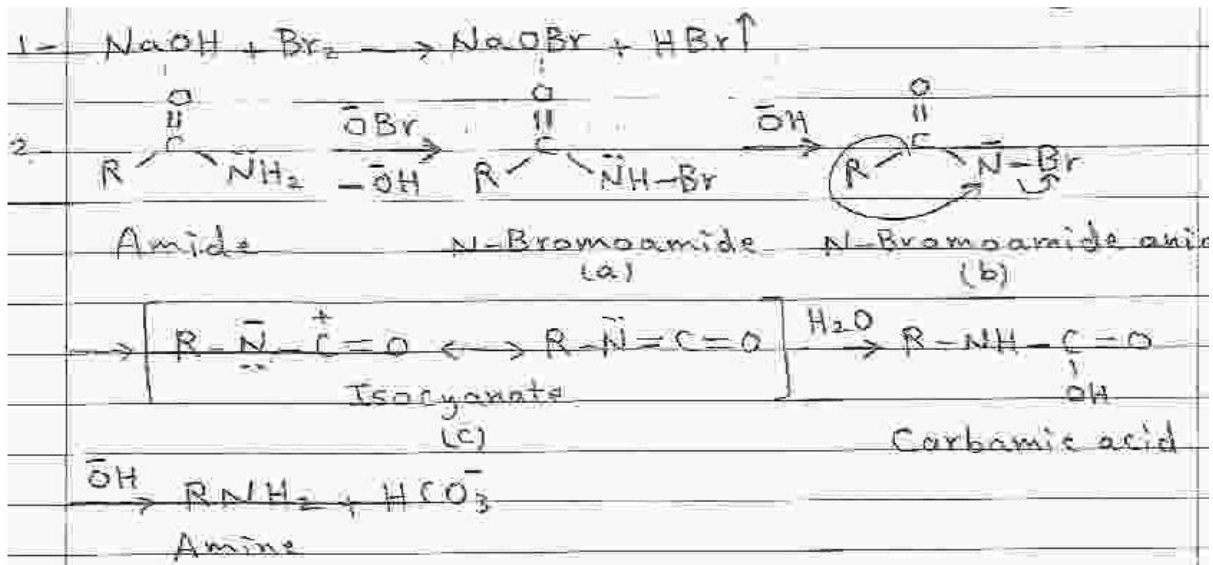 1- NaOH + Br₂ → NaOBr + HBr↑
O O O
2- R-C-N̈H₂ ŌBr → -ŌH R-C-N̈H-Br ŌH → R-C-N̄-Br
Amide N-Bromoamide N-Bromoamide anio
(a) (b)
→ [R-N̄-C⁺=O ←→ R-N̈=C=O] H₂O → R-NH-C=O
OH
Isocyanate
(c) Carbamic acid
ŌH → RNH₂ + HCO₃⁻
Amine